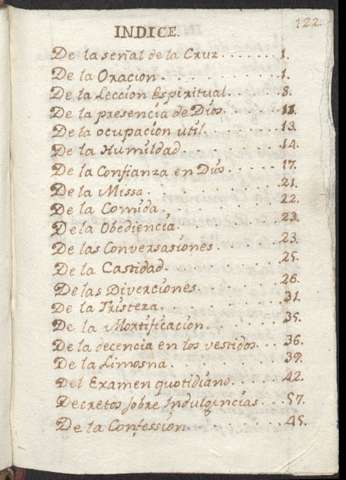 122.
INDICE.
De la señal de la Cruz . . . . . . 1.
De la Oracion . . . . . . . . . 1.
De la Leccion Espiritual . . . . . 8.
De la presencia de Dios . . . . . 11.
De la ocupacion útil . . . . . . . 13.
De la Humildad . . . . . . . . 14.
De la Confianza en Dios . . . . . 17.
De la Missa . . . . . . . . . . 21.
De la Comida . . . . . . . . . 22.
De la Obediencia . . . . . . . . 23.
De las Conversasiones . . . . . . 23.
De la Castidad . . . . . . . . . 25.
De las Diverciones . . . . . . . 26.
De la Tristeza . . . . . . . . . 31.
De la Mortificacion . . . . . . . 35.
De la decencia en los vestidos . . . 36.
De la Limosna . . . . . . . . . 39.
Del Examen quotidiano . . . . . 42.
Decretos sobre Indulgencias . . . . 57.
De la Confession . . . . . . . . 45.